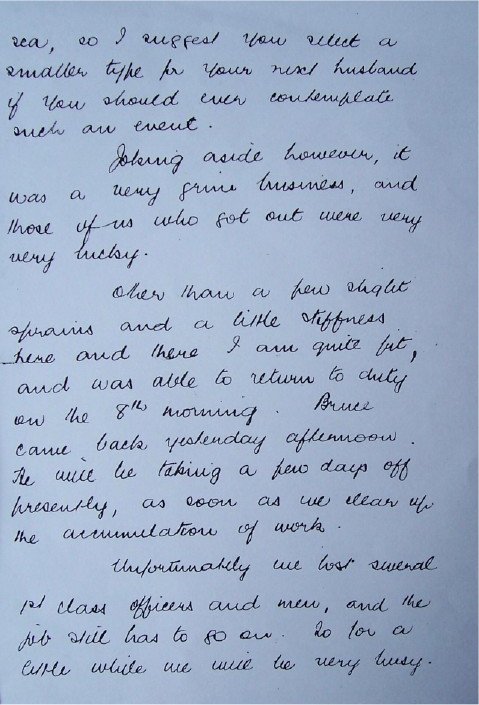 sea, so I suggest you select a
smaller type for your next husband
if you should ever contemplate
such an event.
Joking aside however, it
was a very grim business, and
those of us who got out were very
very lucky.
Other than a few slight
sprains and a little stiffness
here and there I am quite fit,
and was able to return to duty
on the 8th morning. Bruce
came back yesterday afternoon.
He will be taking a few days off
presently, as soon as we clear up
the accumulation of work.
Unfortunately we lost several
1st class officers and men, and the
job still has to go on. So for a
little while we will be very busy.